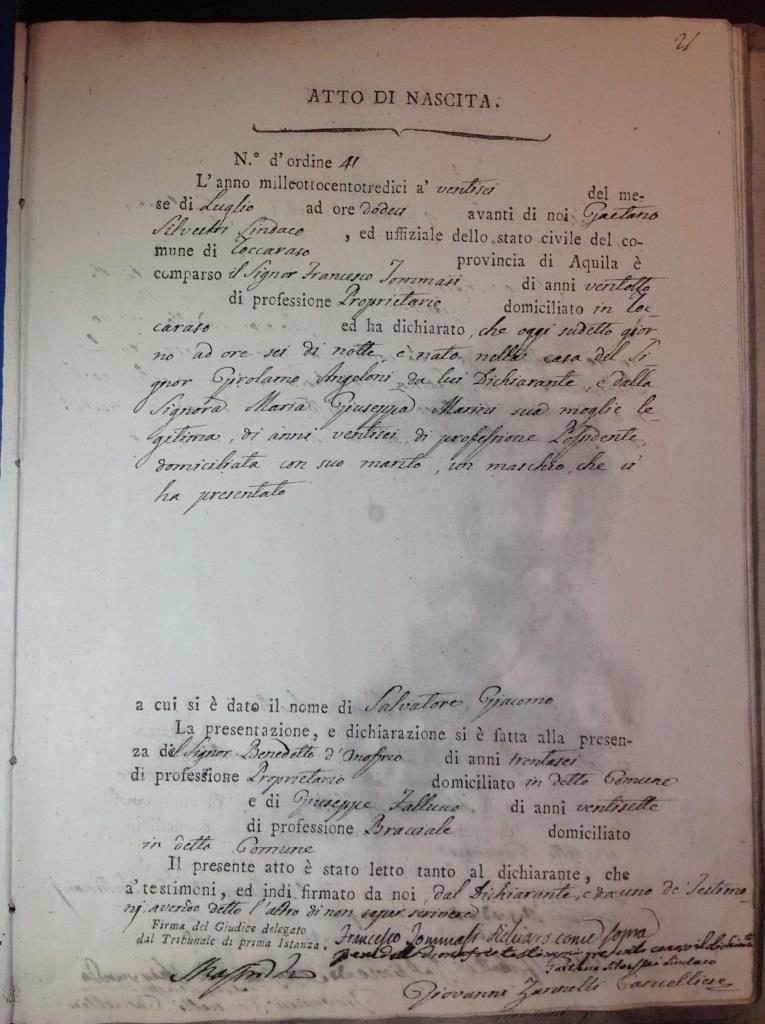 21
ATTO DI NASCITA.
N.° d'ordine 41
L'anno milleottocentotredici a' ventisei del me-
se di Luglio ad ore dodeci avanti di noi Gaetano
Silvestri Sindaco, ed uffiziale dello stato civile del co-
mune di Roccaraso provincia di Aquila è
comparso il Signor Francesco Tommasi di anni ventotto
di professione Proprietario domiciliato in Roc-
caraso ed ha dichiarato, che oggi sudetto gior
no ad ore sei di notte, è nato nella casa del Si
gnor Girolamo Angeloni, da lui Dichiarante, e dalla
Signora Maria Giuseppa Marini sua moglie le-
gitima, di anni ventisei, di professione Possidente,
domiciliata con suo marito, un maschio, che ci
ha presentato
a cui si è dato il nome di Salvatore, Giacomo
La presentazione, e dichiarazione si è fatta alla presen-
za del Signor Benedetto d'Onofrio di anni trentasei
di professione Proprietario domiciliato in detto Comune
e di Giuseppe di anni ventisette
di professione Bracciale domiciliato
in detta Comune
Il presente atto è stato letto tanto al dichiarante, che
a' testimoni, ed indi firmato da noi, dal Dichiarante, e da uno de' Testimo
nj, avendo detto l'altro di non saper scrivere
Firma del Giudice delegato
dal Tribunale di prima Istanza.
Francesco Tommasi dichiaro come sopra
Gaetano Silvestri Sindaco
Giovanni Zannelli Cancelliere